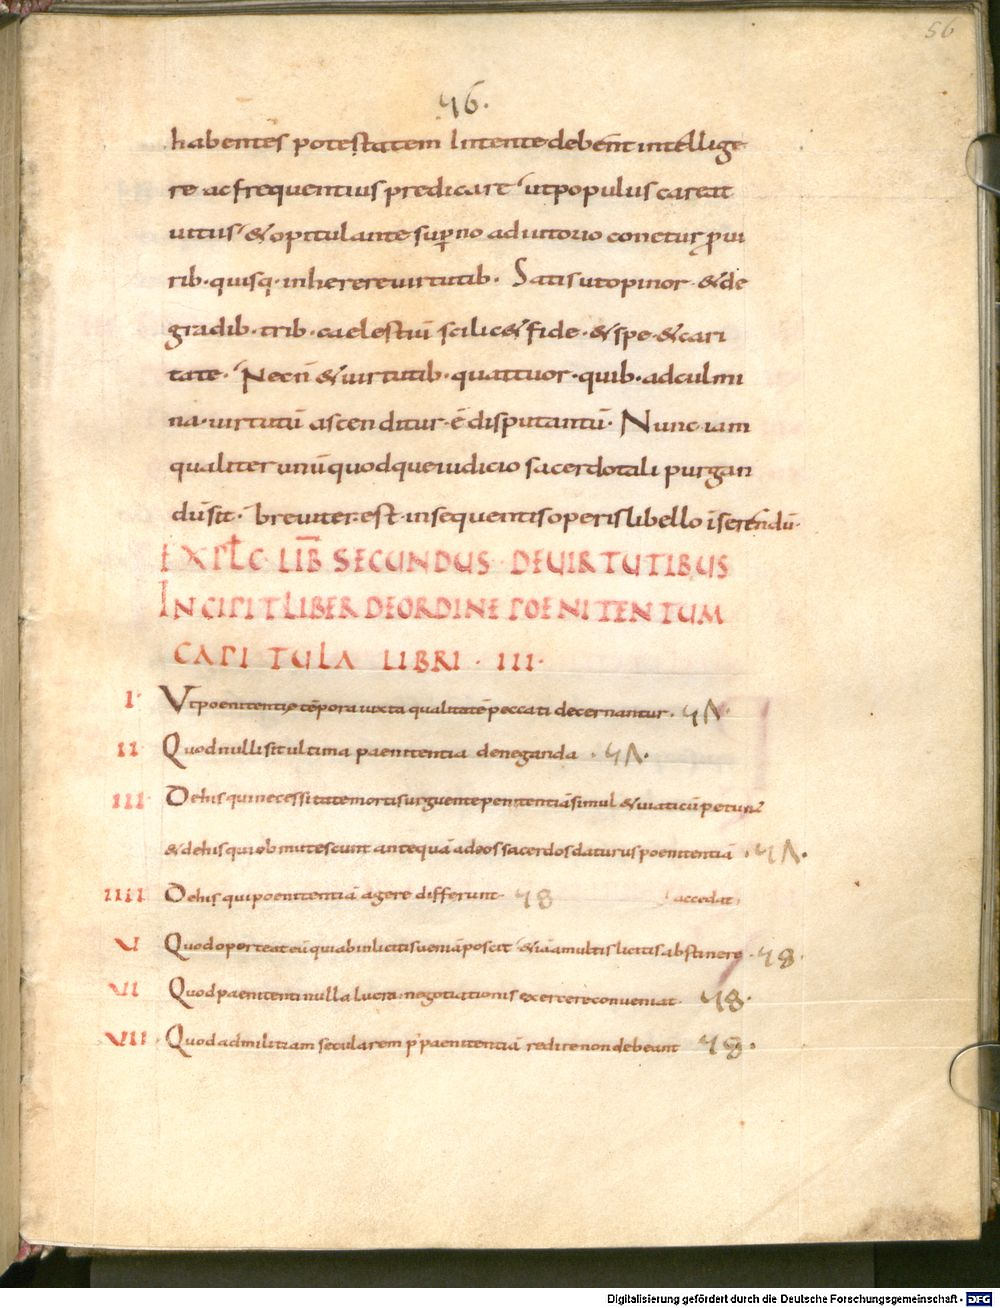 56
46.
habentes potestatem Intente debent intellige
re ac frequentius predicare ut populus careat
uitiis & opitulante sup̄no adiutorio conetur p̄ui
rib· quisq· inherere uirtutib· Satis ut opinor & de
gradib· trib· caelestiū scilic& fide· & spe· & cari
tate· Necn̄ & uirtutib· quattuor· quib· ad culmi
na· uirtutū ascenditur· ē disputantū· Nunc iam
qualiter unūquodque iudicio sacerdotali purgan
dū sit· breuiter est· in sequentis operis libello īserendū·
EXPLC LIB̄ SECUNDUS DE UIRTUTIBUS
INCIPIT LIBER DE ORDINE POENITENTUM
CAPITULA LIBRI · III·
I· Ut poenitentię tēpora iuxta qualitatē peccati decernantur· 47·
II Quod nulli sit ultima paenitentia deneganda · 47·
III· De his qui necessitate mortis urguente penitentiā simul & uiaticū petunt
& de his qui obmutescunt antequā ad eos sacerdos daturus poenitentiā · 47·
IIII De his qui poenitentiā agere differunt· 48 accedat·
V Quod oporteat eū qui ab inlicitis ueniā poscit & iā a multis licitis abstinere · 48·
VI Quod paenitenti nulla lucra negotiationis exercere conueniat· 48·
VII· Quod ad militiam secularem p̄ paenitentiā redire non debeant 48·
Digitalisierung gefördert durch die Deutsche Forschungsgemeinschaft - DFG